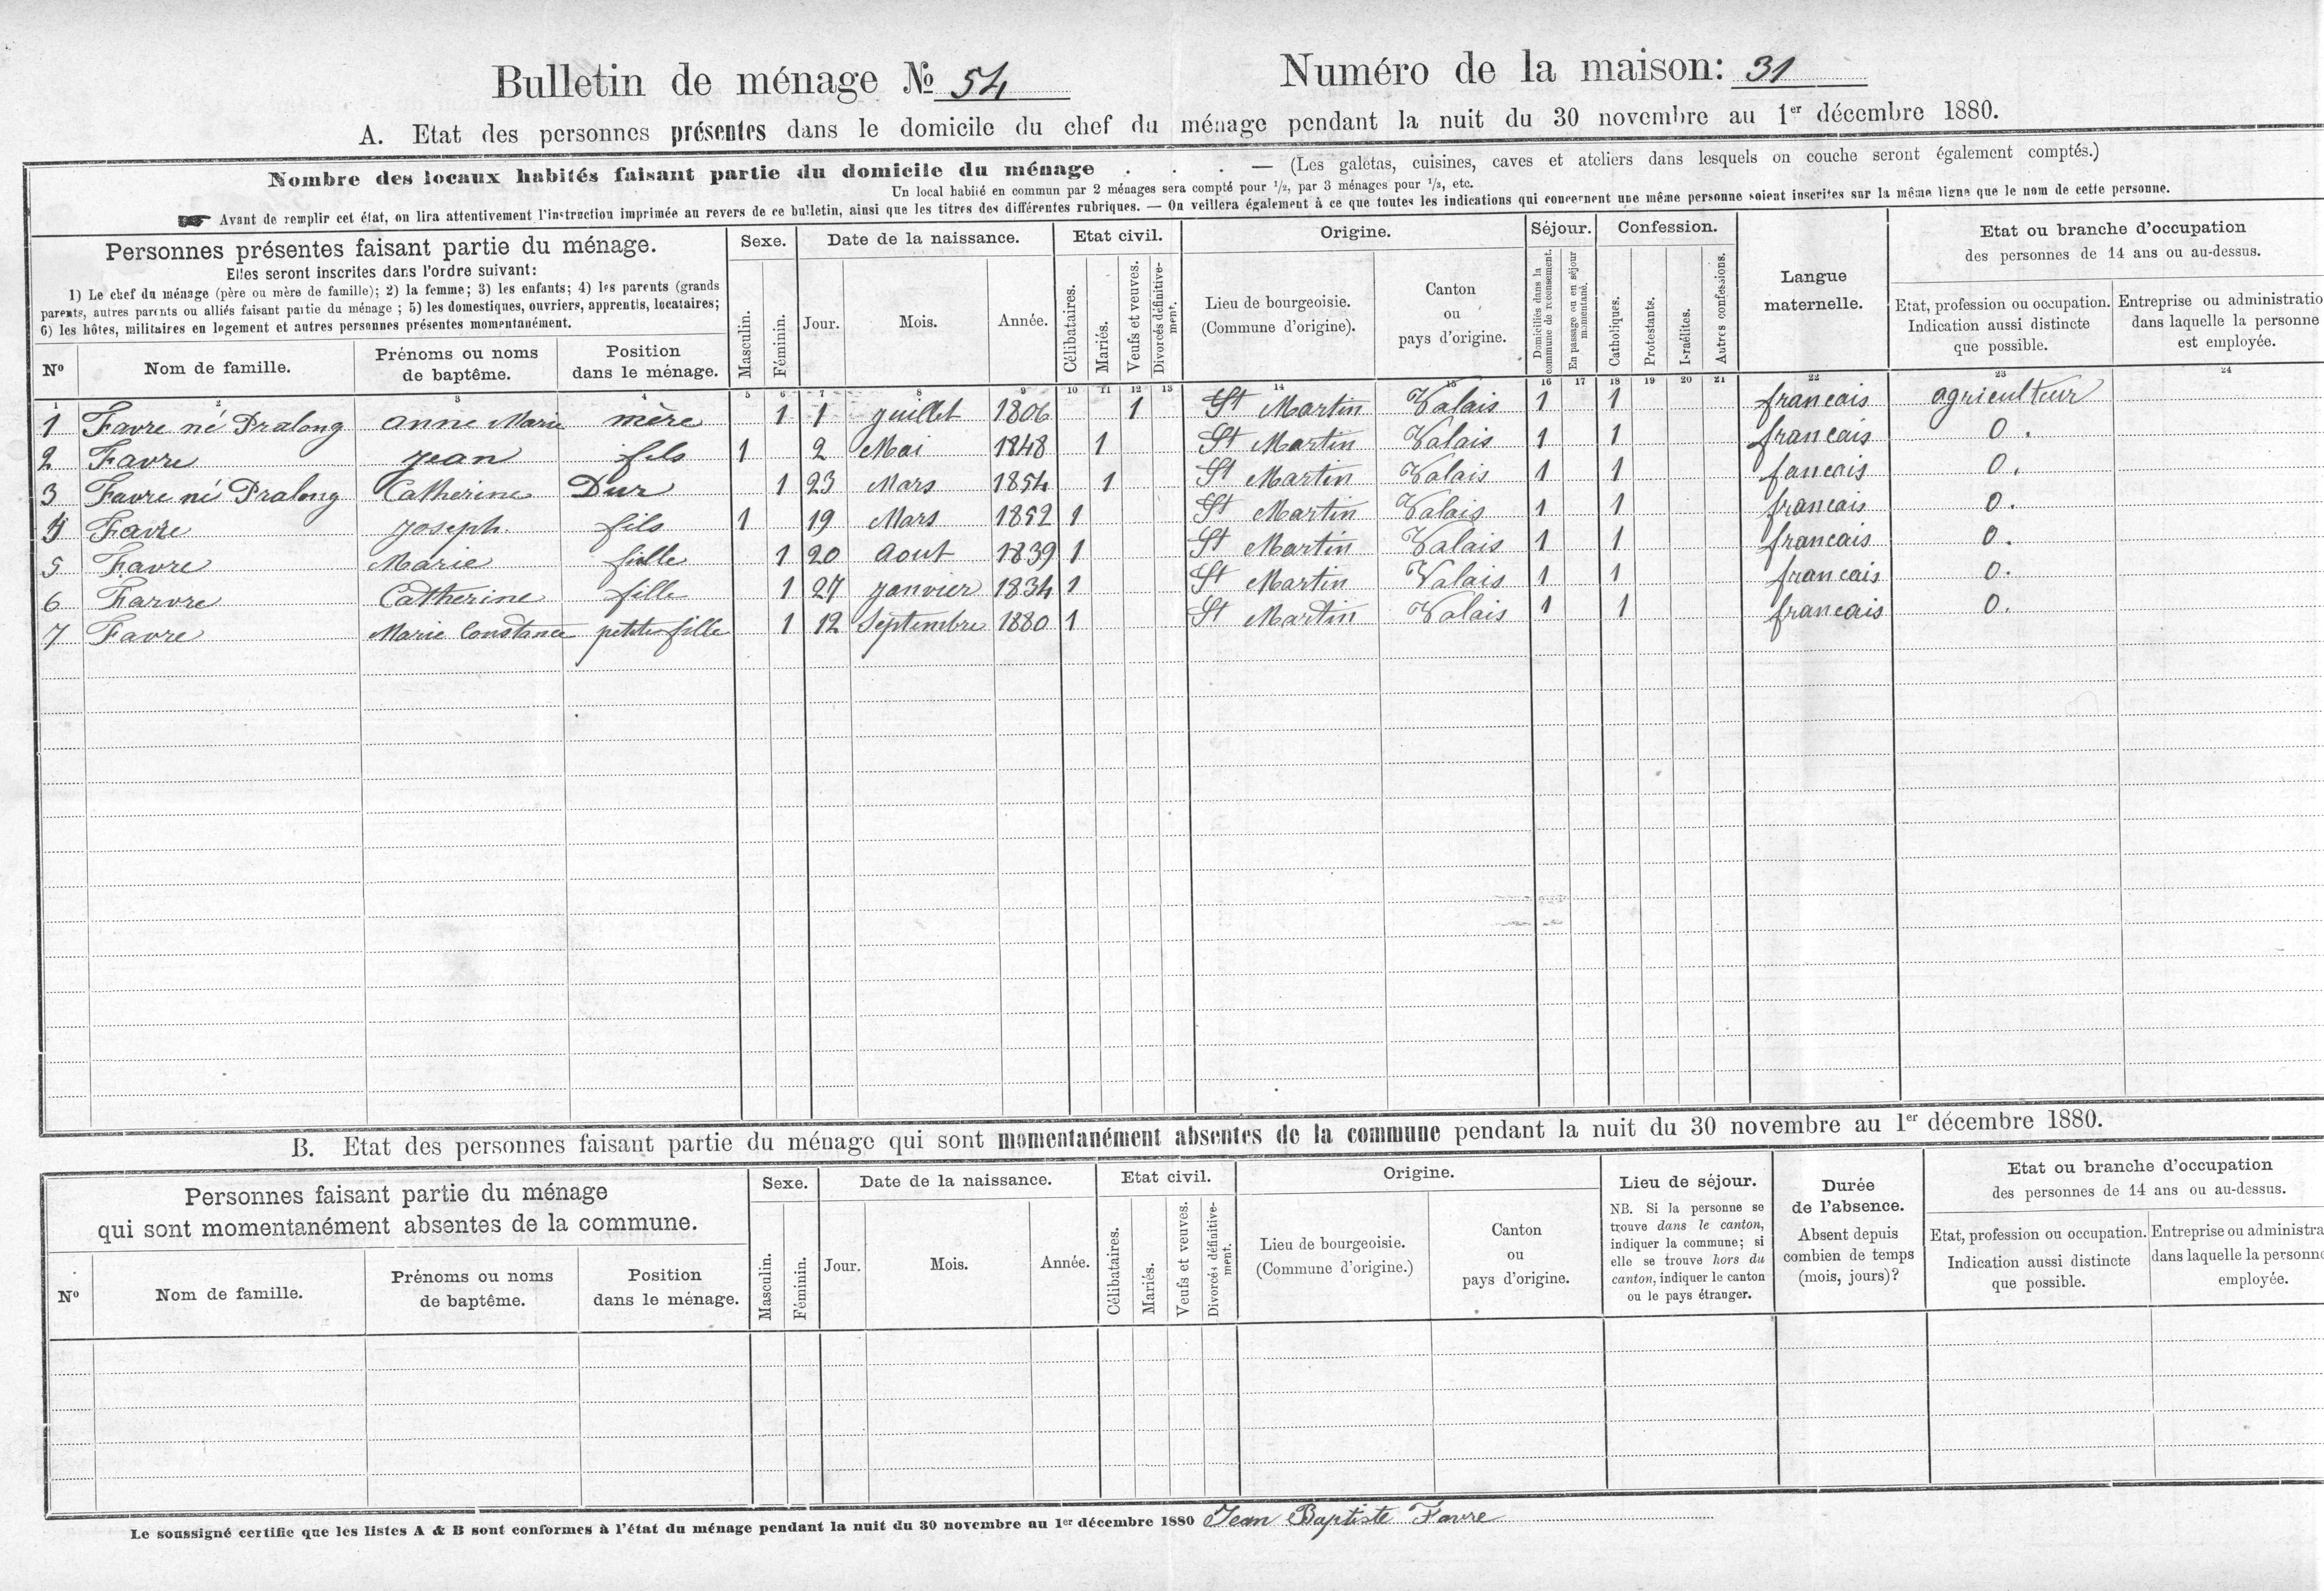 Bulletin de ménage № 54
Numéro de la maison: 31
A. Etat des personnes présentes dans le domicile du chef du ménage pendant la nuit du 30 novembre au 1er décembre 1880.
Nombre des locaux habités faisant partie du domicile du ménage . . . — (Les galetas, cuisines, caves et ateliers dans lesquels on couche seront également comptés.)
Un local habité en commun par 2 ménages sera compté pour 1/2, par 3 ménages pour 1/3, etc.
☛ Avant de remplir cet état, on lira attentivement l'instruction imprimée au revers de ce bulletin, ainsi que les titres des différentes rubriques. — On veillera également à ce que toutes les indications qui concernent une même personne soient inscrites sur la même ligne que le nom de cette personne.
Personnes présentes faisant partie du ménage.
Elles seront inscrites dans l'ordre suivant:
1) Le chef du ménage (père ou mère de famille); 2) la femme; 3) les enfants; 4) les parents (grands
parents, autres parents ou alliés faisant partie du ménage ; 5) les domestiques, ouvriers, apprentis, locataires;
6) les hôtes, militaires en logement et autres personnes présentes momentanément.
Nº
Nom de famille.
Prénoms ou noms
de baptême.
Position
dans le ménage.
Sexe.
Masculin.
Féminin.
Date de la naissance.
Jour.
Mois.
Année.
Etat civil.
Célibataires.
Mariés.
Veufs et veuves.
Divorcés définitive-
ment.
Origine.
Lieu de bourgeoisie.
(Commune d'origine).
Canton
ou
pays d'origine.
Séjour.
Domiciliés dans la
commune de recensement.
En passage ou en séjour
momentané.
Confession.
Catholiques.
Protestants.
Israélites.
Autres confessions.
Langue
maternelle.
Etat ou branche d'occupation
des personnes de 14 ans ou au-dessus.
Etat, profession ou occupation.
Indication aussi distincte
que possible.
Entreprise ou administratio
dans laquelle la personne
est employée.
1 2 3 4 5 6 7 8 9 10 11 12 13 14 15 16 17 18 19 20 21 22 23 24
1 Favre né Pralong anne Marie mère 1 1 juillet 1806 1 St Martin Valais 1 1 francais agriculteur
2 Favre jean fils 1 2 Mai 1848 1 St Martin Valais 1 1 francais 0.
3 Favre né Pralong Catherine Dur 1 23 Mars 1854 1 St Martin Valais 1 1 fancais 0.
4 Favre joseph fils 1 19 Mars 1852 1 St Martin Valais 1 1 francais 0.
5 Favre Marie fille 1 20 aout 1839 1 St Martin Valais 1 1 francais 0.
6 Farvre Catherine fille 1 27 janvier 1834 1 St Martin Valais 1 1 francais 0.
7 Favre Marie Constance petite fille 1 12 Septembre 1880 1 St Martin Valais 1 1 francais 0.
B. Etat des personnes faisant partie du ménage qui sont momentanément absentes de la commune pendant la nuit du 30 novembre au 1er décembre 1880.
Personnes faisant partie du ménage
qui sont momentanément absentes de la commune.
Nº
Nom de famille.
Prénoms ou noms
de baptême.
Position
dans le ménage.
Sexe.
Masculin.
Féminin.
Date de la naissance.
Jour.
Mois.
Année.
Etat civil.
Célibataires.
Mariés.
Veufs et veuves.
Divorcés définitive-
ment.
Origine.
Lieu de bourgeoisie.
(Commune d'origine.)
Canton
ou
pays d'origine.
Lieu de séjour.
NB. Si la personne se
trouve dans le canton,
indiquer la commune; si
elle se trouve hors du
canton, indiquer le canton
ou le pays étranger.
Durée
de l'absence.
Absent depuis
combien de temps
(mois, jours)?
Etat ou branche d'occupation
des personnes de 14 ans ou au-dessus.
Etat, profession ou occupation.
Indication aussi distincte
que possible.
Entreprise ou administra
dans laquelle la personne
employée.
Le soussigné certifie que les listes A & B sont conformes à l'état du ménage pendant la nuit du 30 novembre au 1er décembre 1880 Jean Baptiste Favre